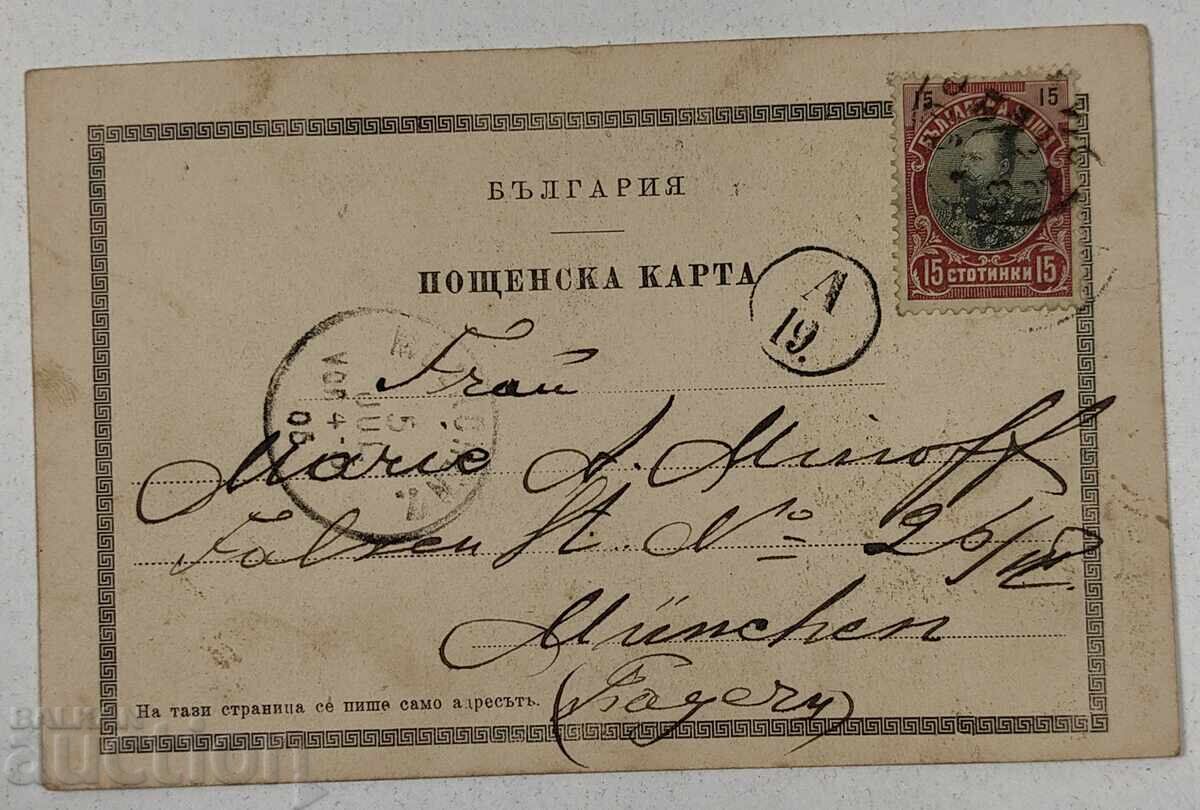 БЪЛГАРИЯ
ПОЩЕНСКА КАРТА
15 15
15 СТОТИНКИ 15
A
19.
5
JUL
VOR 4-
05
Frau
Marie A. Minoff
St. No 26/IV
München
(Bayern)
На тази страница се пише само адресътъ.
BALKAN
auction